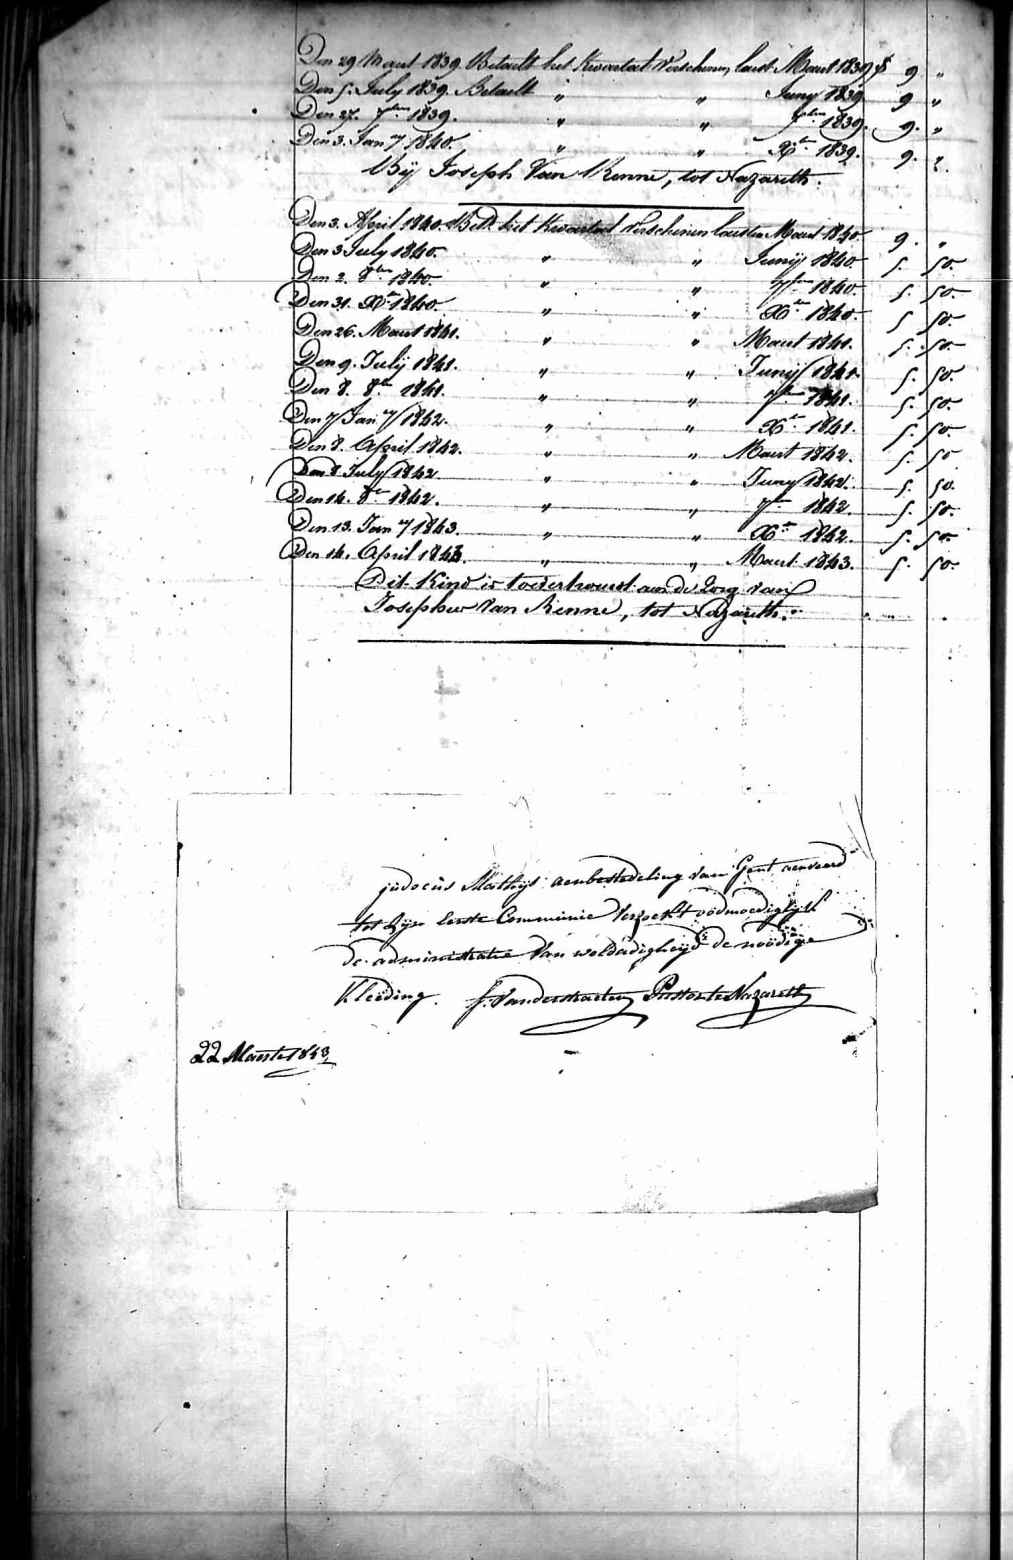 Den 29 Maart 1839 Betaelt het Kwartael Verschenen laest Maart 1839 9 "
Den 5. July 1839. Betaelt " " Juny 1839 9 "
Den 27. 7ber 1839. " " 7ber 1839. 9. "
Den 3. Jany 1840. " " Xber 1839. 9. "
Bij Joseph Van Renne, tot Nazareth.
Den 3. April 1840. Bett. het Kwartael Verschenen laesten Maart 1840. 9. "
Den 3 July 1840. " " Junij 1840 5. 50.
Den 2. 8ber 1840 " " 7ber 1840. 5. 50.
Den 31. Xr 1840. " " Xber 1840. 5 50.
Den 26. Maart 1841. " " Maart 1841. 5. 50.
Den 9. Julij 1841. " " Junij 1841. 5. 50.
Den 8. 8br 1841. " " 7ber 1841. 5. 50.
Den 7 Jany 1842. " " Xbr 1841. 5. 50.
Den 8. April 1842. " " Maart 1842. 5. 50
Den 8 July 1842 " " Juny 1842. 5. 50.
Den 14. 8br 1842. " " 7br 1842. 5. 50.
Den 13. Jany 1843. " " Xbr 1842. 5. 50
Den 14. April 1843. " " Maart 1843. 5. 50.
Dit Kind is toevertrouwt aen de Zorg van
Josephus Van Renne, tot Nazareth.
judocus Mathijs aenbestedeling van Gent aenveerd
tot Zijn eerste Communie Verzoekt oodmoediglijk
de administratie Van weldadigheijd de noodige
Kleeding. f. Vanderstraeten Pastor te Nazareth
22 Maerte 1843